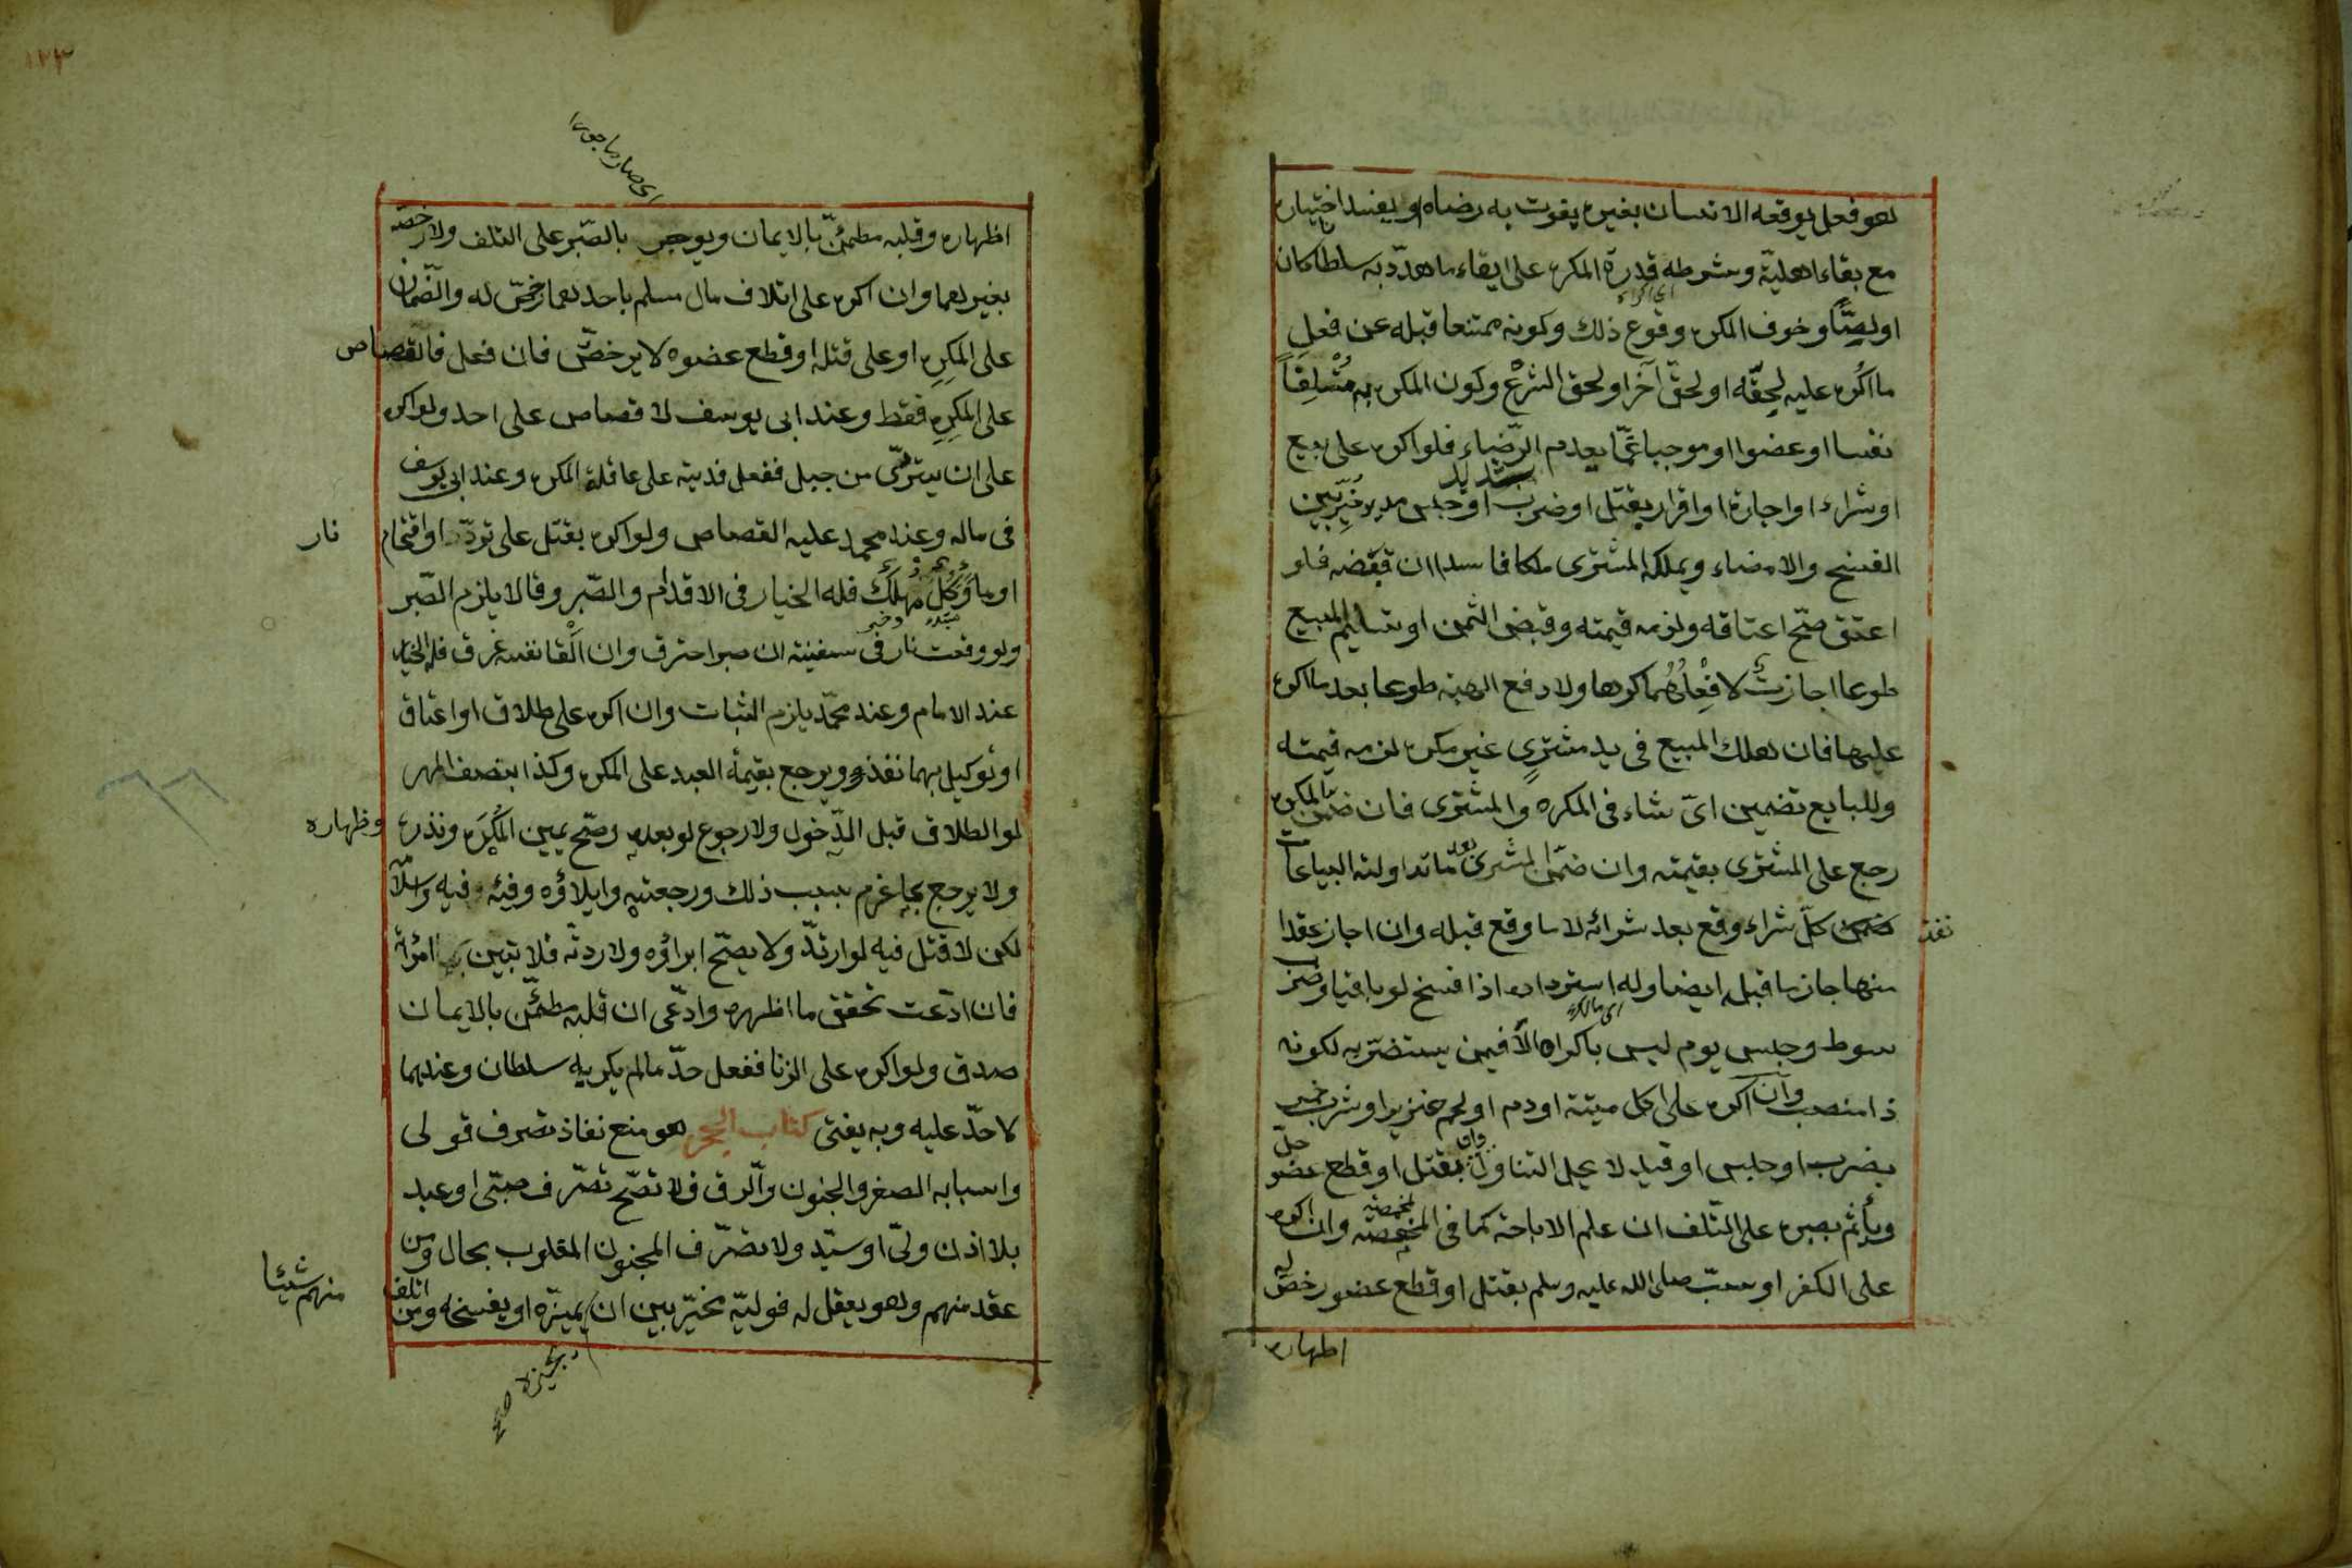 هو فعل يوقعه الانسان بغيره يفوت به رضاه او يفسد اختياره
مع بقاء اهليته وشرطه قدرة المكره على ايقاء ما هدّد به سلطانا كان
او لصّا وخوف المكره وقوع ذلك وكونه ممتنعا قبله عن فعل
ما اكره عليه لحقّه او لحقّ آخر او لحق الشرع وكون المكره به متلفاً
نفسا او عضوا او موجبا غمّا يعدم الرّضاء فلو اكره على بيع
او شراء او اجارة او اقرار بقتل او ضرب شديد او حبس مديد خيّر بين
الفسخ والامضاء ويملكه المشترى ملكا فاسدا ان قبضه فلو
اعتق صحّ اعتاقه ولزمه قيمته وقبض الثمن او تسليم المبيع
طوعا اجازت لا فعلهما كرها ولا دفع الهبة طوعا بعد ما اكره
عليها فان هلك المبيع فى يد مشترٍى غير مكره لزمه قيمته
وللبايع تضمين اىّ شاء فى المكره والمشترى فان ضمّن المكره
رجع على المشترى بقيمته وان ضمّن المشترى بعد ما تداولته البياعات
نفذ كلّ شراء وقع بعد شرائه لا ما وقع قبله وان اجاز عقدا
منها جاز ما قبله ايضا وله استرداده اذا فسخ لو باقيا وضرب
اى مالكه
سوط وحبس يوم ليس باكراه الّا فيمن يستضرّ به لكونه
ذا منصب وان اكره على اكل ميتة او دم او لحم خنزير او شرب خمر
بضرب او حبس او قيد لا يحل التناول وان بقتل او قطع عضو حلّ
ويأثم بصبره على التّلف ان علم الاباحة كما فى المخمصة وان اكره
على الكفر او سبّ صلى الله عليه وسلم بقتل او قطع عضو رخصّ له
اظهاره
١٢٣
اى صار ماجورا
اظهاره وقلبه مطمئنّ بالايمان ويوجر بالصّبر على التلف ولا رخصة
بغيرهما وان اكره على اتلاف مال مسلم باحدهما رخصّ له والضّمان
على المكرِه او على قتله او قطع عضوه لا يرخصّ فان فعل فالقصاص
على المكرِه فقط وعند ابى يوسف لا قصاص على احد ولو اكره
على ان يتردّى من جبل ففعل فديته على عاقلة المكره وعند ابى يوسف
فى ماله وعند محمد عليه القصاص ولو اكره بقتل على تردّ او اقتحام نار
او ماء وكلّ مهلك فله الخيار فى الاقدام والصّبر وقالا يلزم الصّبر
مبتداء وخبر
ولو وقعت نار فى سفينة ان صبر احترق وان القا نفسه غرق فله الخيار
عند الامام وعند محمّد يلزم الثبات وان اكره على طلاق او اعتاق
او توكيل بهما نفذ ويرجع بقيمة العبد على المكره وكذا بنصف المهر
لو الطلاق قبل الدّخول ولا رجوع لو بعده وصّح يمين المكرَه ونذره وظهاره
ولا يرجع بما غرم بسبب ذلك ورجعته وايلاؤه وفيئه فيه واسلامه
لكن لا قتل فيه لو ارتدّ ولا يصّح ابراؤه ولا ردته فلا تبين بها امرأته
فان ادّعت تحقق ما اظهره وادّعى ان قلبه مطمئّن بالايمان
صدق ولو اكره على الزنا ففعل حدّ ما لم يكرهه سلطان وعندهما
لا حدّ عليه وبه يفتى كتاب الحجر هو منع نفاذ تصرف قولى
واسبابه الصغر والجنون والرّق فلا تصّح تصّرف صبّى او عبد
بلا اذن ولىّ او سيّد ولا تصّرف المجنون المغلوب بحال ومن
عقد منهم وهو يعقل له فوليّه مخيّر بين ان يجيزه او يفسخه ومن اتلف منهم شيئا
يجيزه صح